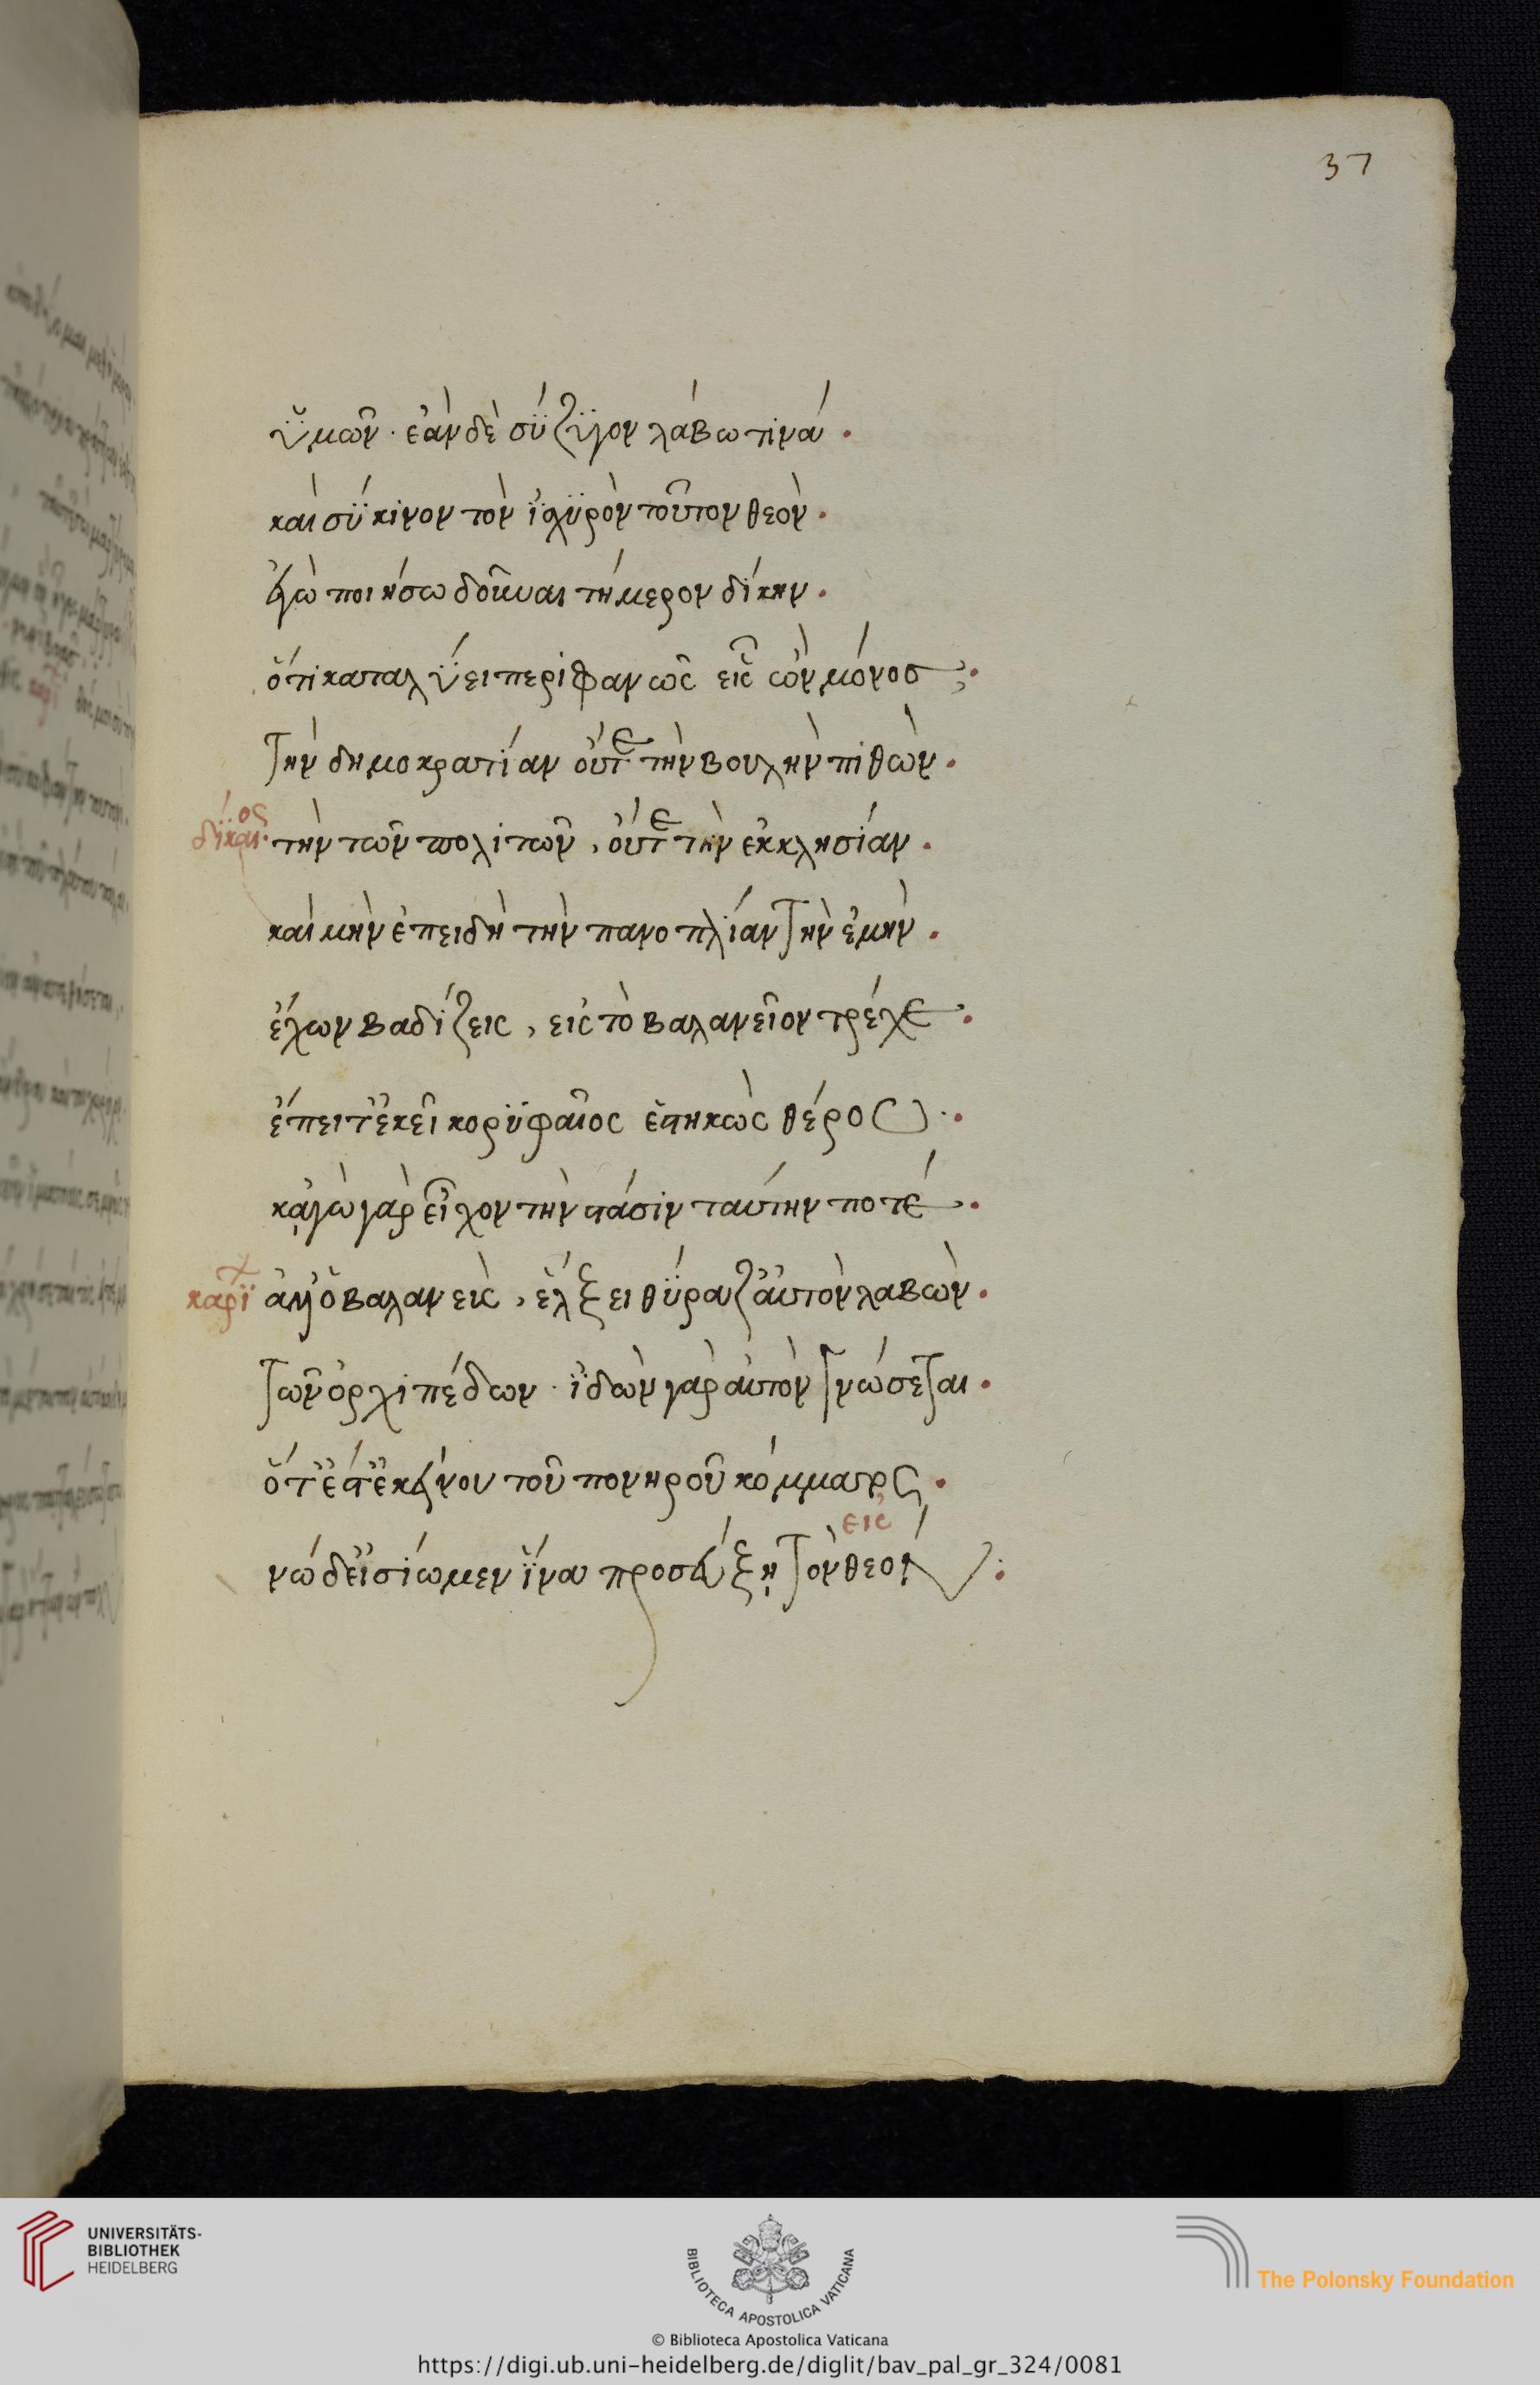 37
ὑμῶν · ἐὰν δὲ σύζϋγον λάβω τινά ·
καὶ σύκινον τὸν ἰσχϋρὸν τοῦτον θεὸν ·
ἐγὼ ποιήσω δοῦναι τήμερον δίκην ·
ὅτι καταλύει περιφανῶς εἷς ὢν μόνος ·
τὴν δημοκρατίαν οὔτε τὴν βουλὴν πιθὼν ·
δίκαιος · τὴν τῶν πολιτῶν, οὔτε τὴν ἐκκλησίαν ·
καὶ μὴν ἐπειδὴ τὴν πανοπλίαν τὴν ἐμὴν ·
ἔχων βαδίζεις, εἰς τὸ βαλανεῖον τρέχε ·
ἔπειτ' ἐκεῖ κορϋφαῖος ἑστηκὼς θέρου ·
κᾀγὼ γὰρ εἶχον τὴν στάσιν ταύτην ποτέ ·
καρϊ ἀλλ' ὁ βαλανεὺς, ἕλξει θύραζ' αὐτὸν λαβὼν ·
τῶν ὀρχιπέδων · ἰδὼν γὰρ αὐτὸν γνώσεται ·
ὅτ' ἔστ' ἐκείνου τοῦ πονηροῦ κόμματος ·
εἰς
νώ δ' εἰσίωμεν ἵνα προσεύξῃ τὸν θεόν :
UNIVERSITÄTS-
BIBLIOTHEK
HEIDELBERG
BIBLIOTECA APOSTOLICA VATICANA
The Polonsky Foundation
© Biblioteca Apostolica Vaticana
https://digi.ub.uni-heidelberg.de/diglit/bav_pal_gr_324/0081